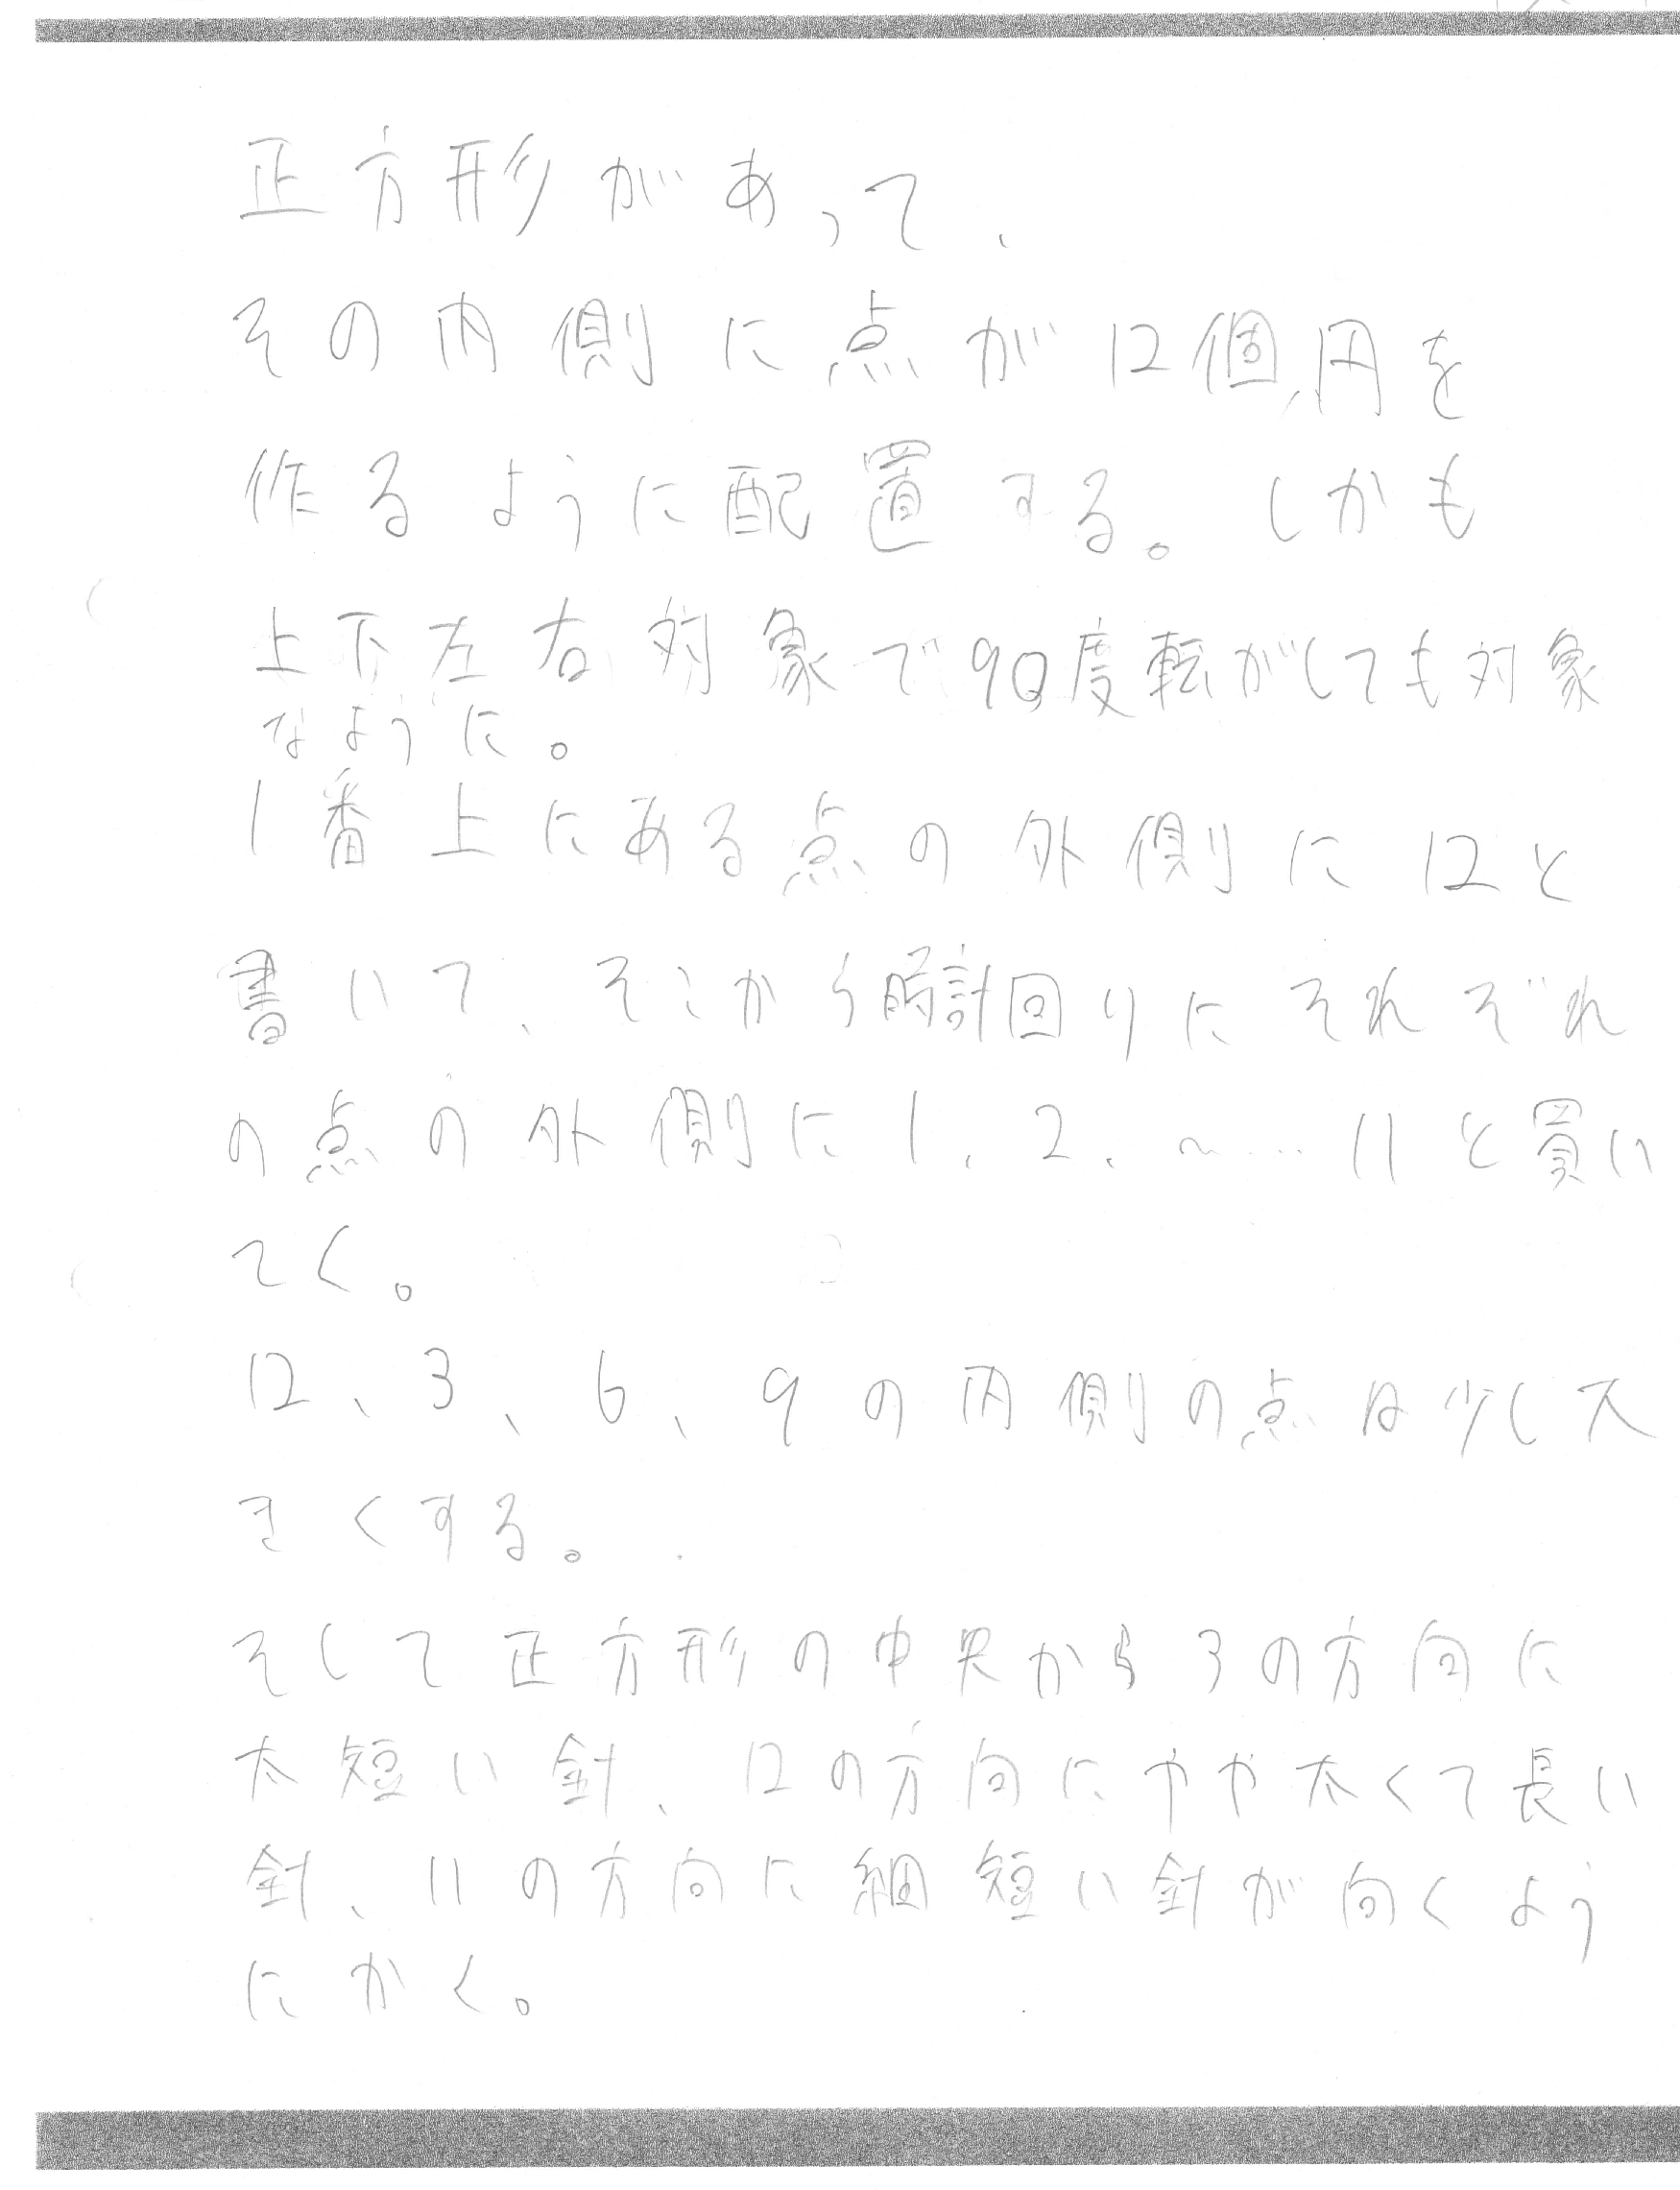 正方形があって、
その内側に点が12個、円を
作るように配置する。しかも
上下左右対象で90度転がしても対象
なように。
1番上にある点の外側に12と
書いて、そこから時計回りにそれぞれ
の点の外側に1、2、〜……11と買い
てく。
12、3、6、9の内側の点は少し大
きくする。
そして正方形の中央から3の方向に
太短い針、12の方向にやや太くて長い
針、11の方向に細短い針が向くよう
にかく。